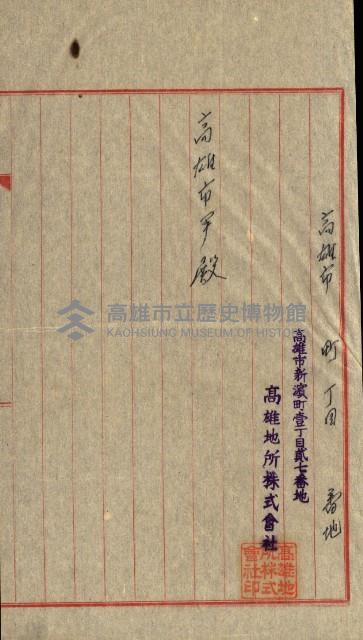 高雄市　町　丁目　番地
高雄市新濱町壹丁目貳七番地
高雄地所株式會社
高雄地
所株式
會社印
高雄市尹殿
高雄市立歷史博物館
KAOHSIUNG MUSEUM OF HISTORY